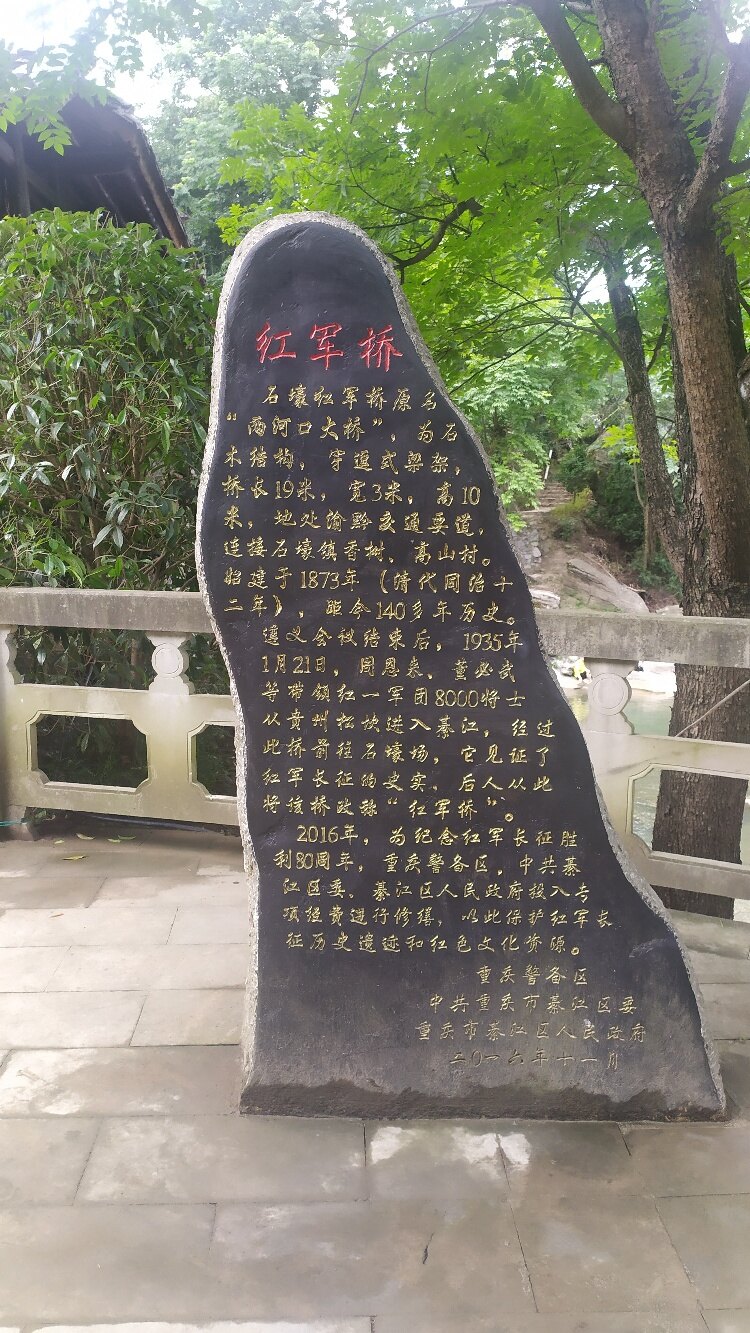 红军桥
石壕红军桥原名
“两河口大桥”，为石
木结构，穿逗式梁架，
桥长19米，宽3米，高10
米，地处渝黔交通要道，
连接石壕镇香树、高山村。
始建于1873年（清代同治十
二年），距今140多年历史。
遵义会议结束后，1935年
1月21日，周恩来、董必武
等带领红一军团8000将士
从贵州松坎进入綦江，经过
此桥前往石壕场，它见证了
红军长征的史实，后人从此
将该桥改称“红军桥”。
2016年，为纪念红军长征胜
利80周年，重庆警备区，中共綦
江区委、綦江区人民政府投入专
项经费进行修缮，以此保护红军长
征历史遗迹和红色文化资源。
重庆警备区
中共重庆市綦江区委
重庆市綦江区人民政府
二〇一六年十一月